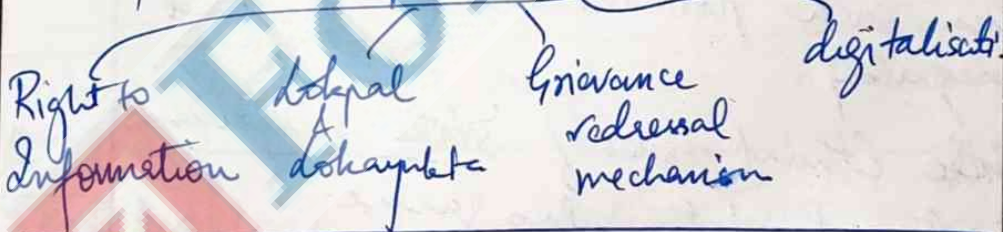 Right to
Information
Lokpal
&
Lokayukta
Grievance
redressal
mechanism
digitalisati